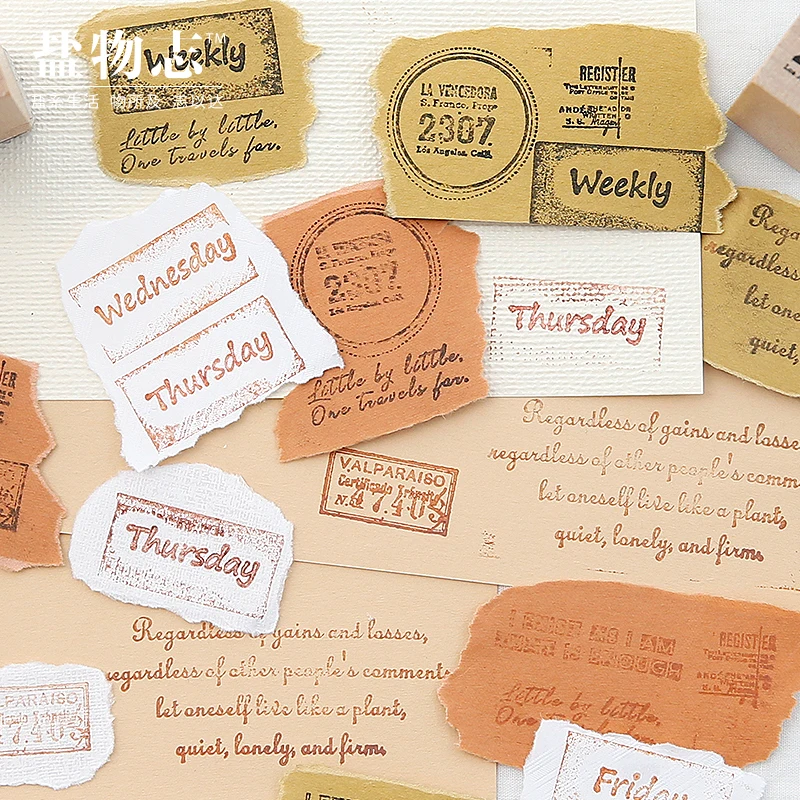 盐物志™
Weekly
Little by little,
One travels far.
LA VENCEDORA
S. Franco, Frog
2307
Los Angeles, Calif.
REGISTER
Weekly
Wednesday
Thursday
2307
Los Angeles
Little by little,
One travels far.
Thursday
Rega
regardless
let one
quiet,
ER
VALPARAISO
Certificado Tránsito
N. 47.405
Regardless of gains and losse
regardless of other people's comm
let oneself live like a plant,
quiet, lonely, and firm.
Thursday
Regardless of gains and losses,
regardless of other people's comments
let oneself live like a plant,
quiet, lonely, and firm.
ALPARAISO
7.405
I EXIST AS I AM
THAT IS ENOUGH
REGISTER
Little by little,
One
Friday